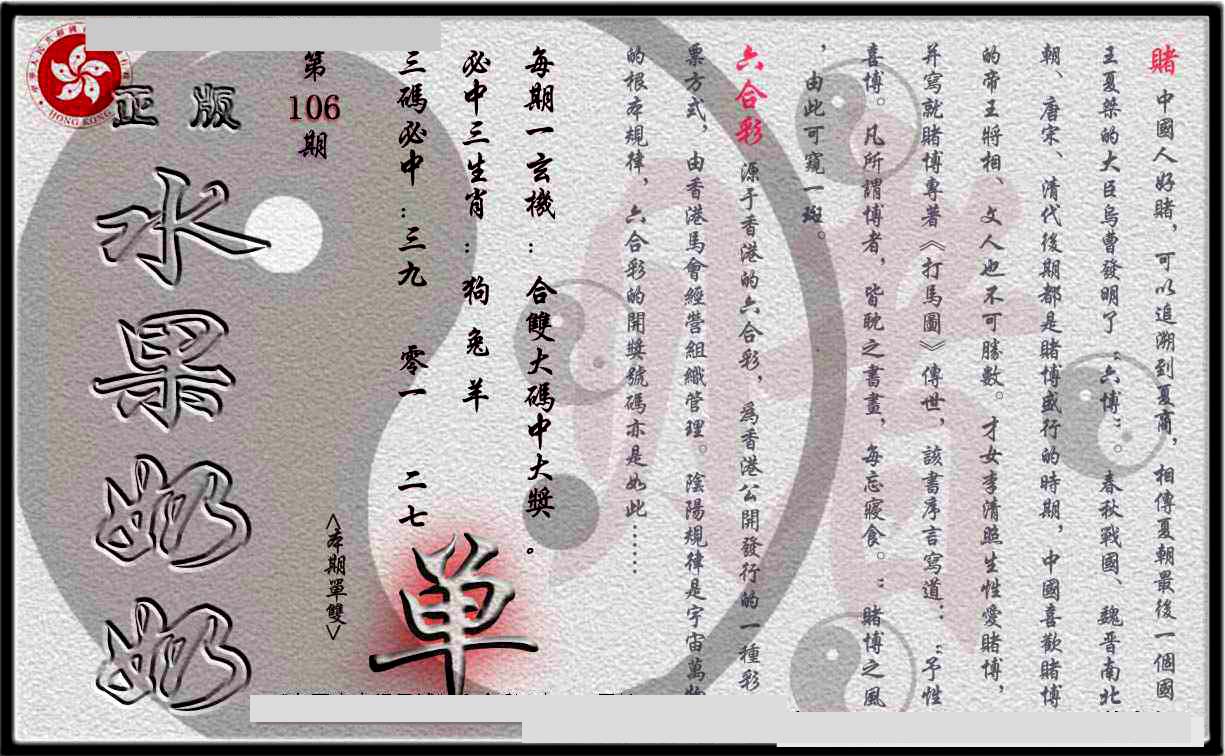 賭 中國人好賭，可以追溯到夏商，相傳夏朝最後一個國
王夏桀的大臣烏曹發明了“六博”。春秋戰國、魏晋南北
朝、唐宋、清代後期都是賭博盛行的時期，中國喜歡賭博
的帝王將相、文人也不可勝數。才女李清照生性愛賭博，
并寫就賭博專著《打馬圖》傳世，該書序言寫道：“予性
喜博。凡所謂博者，皆耽之書畫，每忘寢食。”賭博之風
，由此可窺一斑。
六合彩 源于香港的六合彩，爲香港公開發行的一種彩
票方式，由香港馬會經營組織管理。陰陽規律是宇宙萬物
的根本規律，六合彩的開獎號碼亦是如此……
每期一玄機：合雙大碼中大獎。
必中三生肖：狗 兔 羊
三碼必中：三九 零一 二七
單
<本期單雙>
第
106
期
正版
水果奶奶
HONG KONG